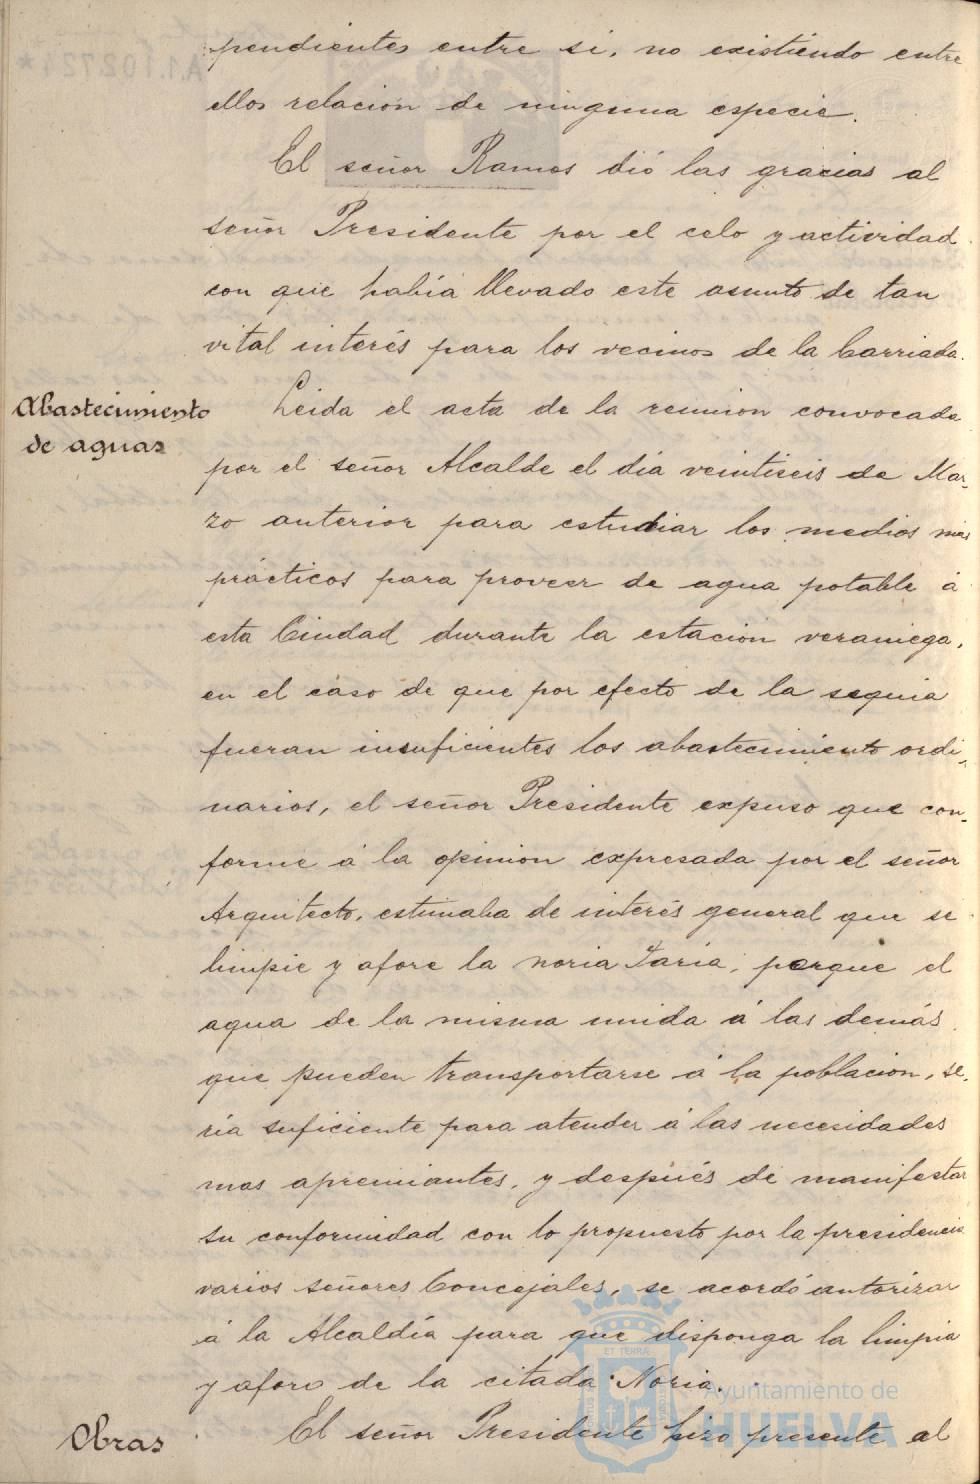 pendientes entre si, no existiendo entre
ellos relación de ninguna especie.
El señor Ramos dió las gracias al
señor Presidente por el celo y actividad
con que había llevado este asunto de tan
vital interés para los vecinos de la barriada.
Abastecimiento
de aguas
Leida el acta de la reunion convocada
por el señor Alcalde el día veintiseis de Mar-
zo anterior para estudiar los medios mas
prácticos para proveer de agua potable á
esta Ciudad durante la estación veraniega,
en el caso de que por efecto de la sequia
fueran insuficientes los abastecimiento ordi-
narios, el señor Presidente expuso que con-
forme á la opinion expresada por el señor
Arquitecto, estimaba de interés general que se
limpie y afore la noria Jaria, porque el
agua de la misma unida á las demás
que pueden transportarse á la población, se-
ría suficiente para atender á las necesidades
mas apremiantes, y después de manifestar
su conformidad con lo propuesto por la presidencia
varios señores Concejales, se acordó autorizar
á la Alcaldía para que disponga la limpia
y aforo de la citada Noria.
Obras
El señor Presidente hizo presente al
A1.102.721*
ET TERRÆ
Ayuntamiento de
HUELVA